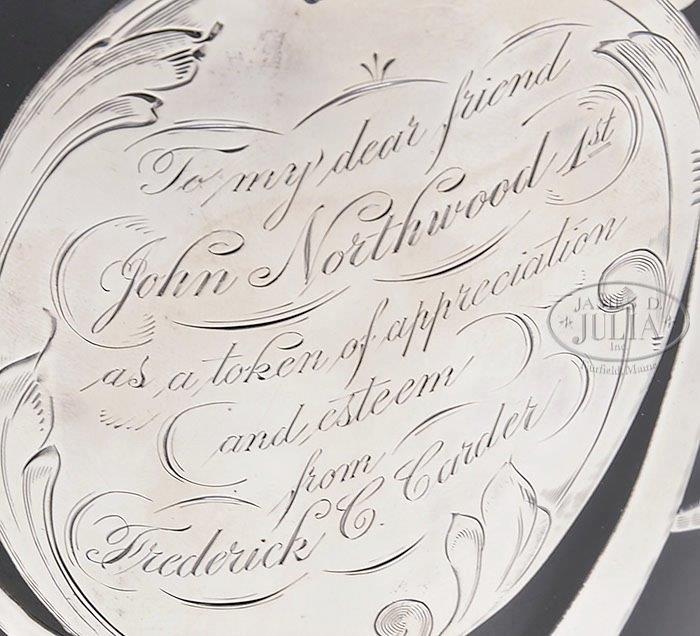 To my dear friend
John Northwood 1st
as a token of appreciation
and esteem
from
Frederick C. Carder
JAMES D.
JULIA
Inc.
Fairfield, Maine